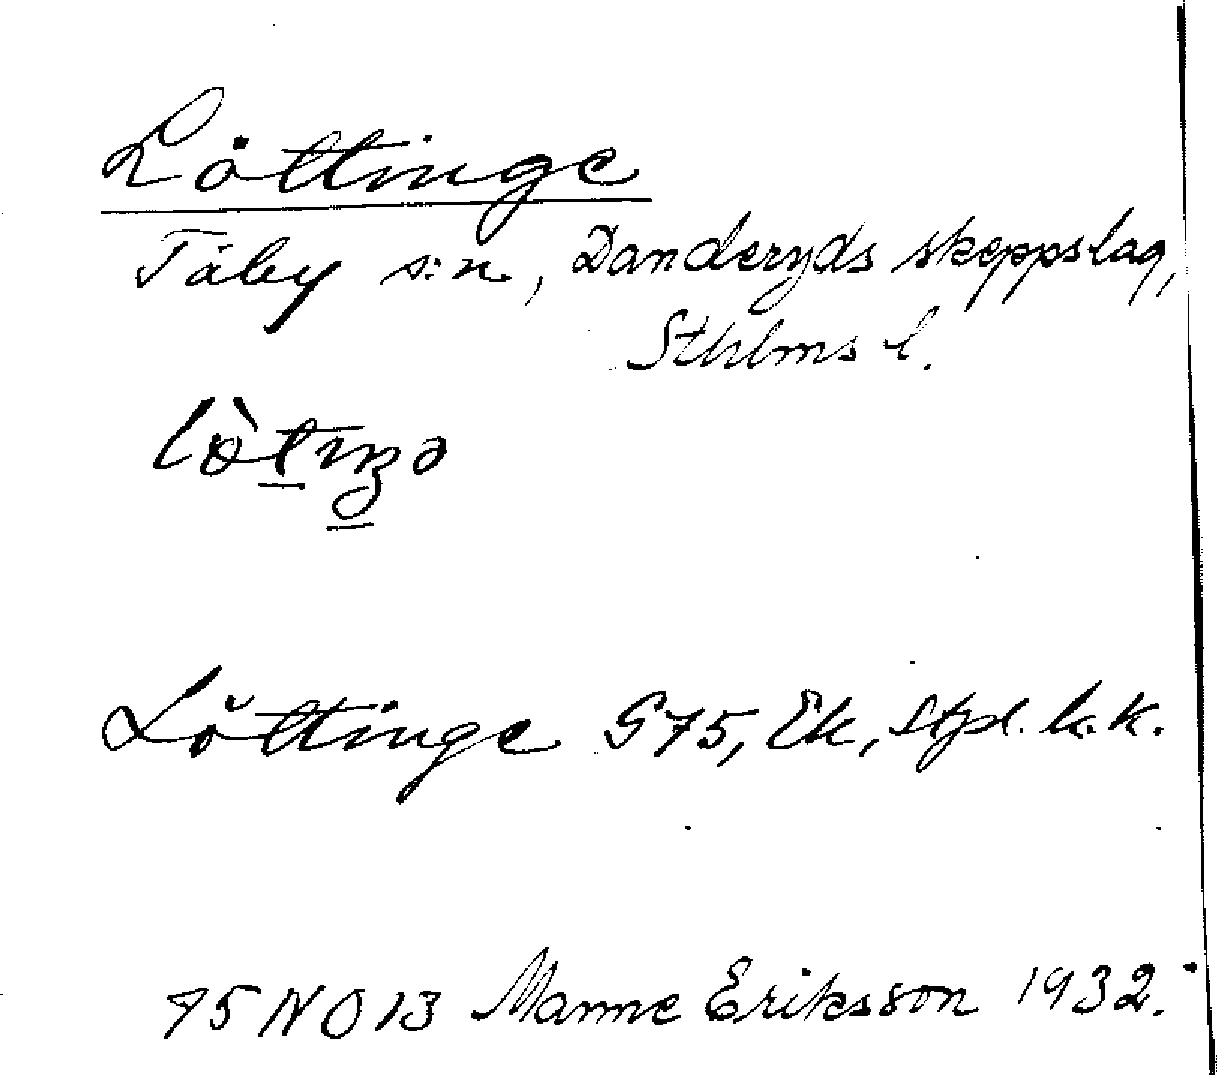 Löttinge
Täby s:n, Danderyds skeppslag,
Sthlms l.
lòtıŋə
Löttinge G75, Ek, Stpl. k.k.
75 NO 13 Manne Eriksson 1932.